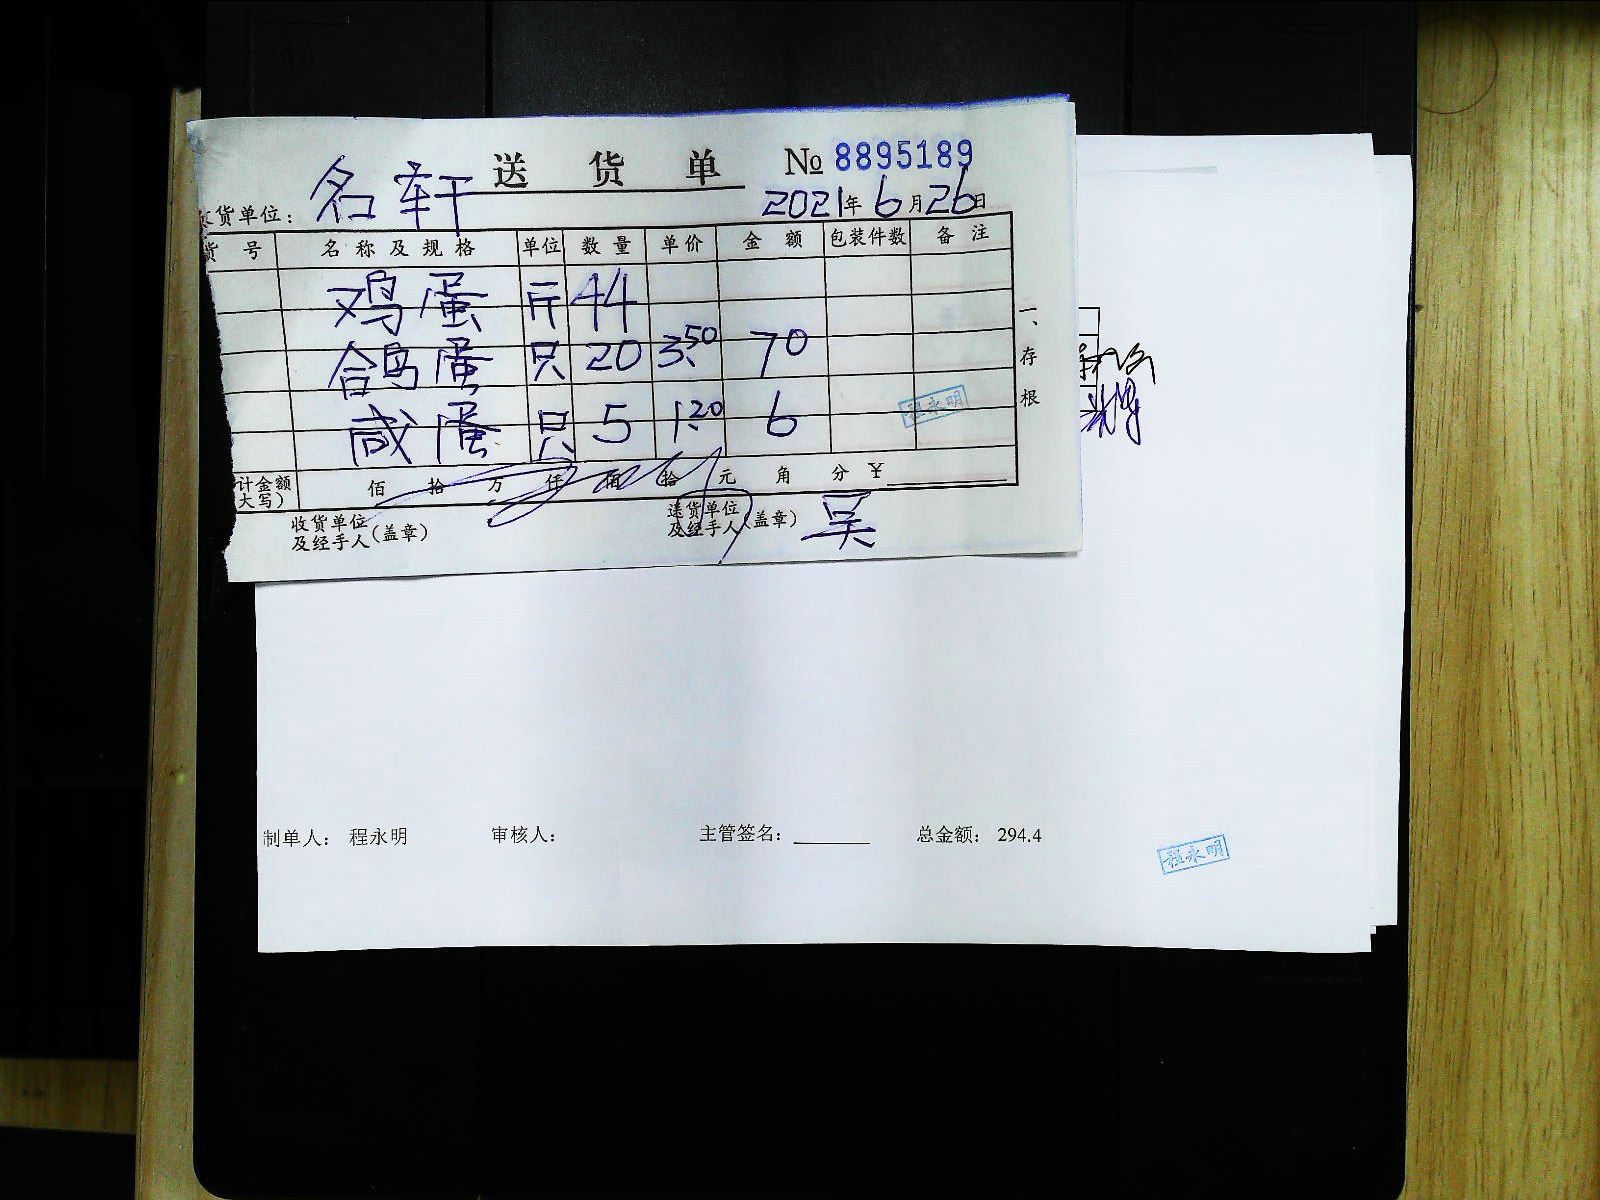 送货单 № 8895189
收货单位: 名轩 2021年6月26日
货号 名称及规格 单位 数量 单价 金额 包装件数 备注
鸡蛋 斤 44
鸽蛋 只 20 3.50 70
咸蛋 只 5 1.20 6
程永明
计金额(大写) 佰 拾 万 仟 佰 拾 元 角 分 ¥
收货单位及经手人(盖章) 送货单位及经手人(盖章) 吴
一、存根
制单人: 程永明 审核人: 主管签名: 总金额: 294.4
程永明